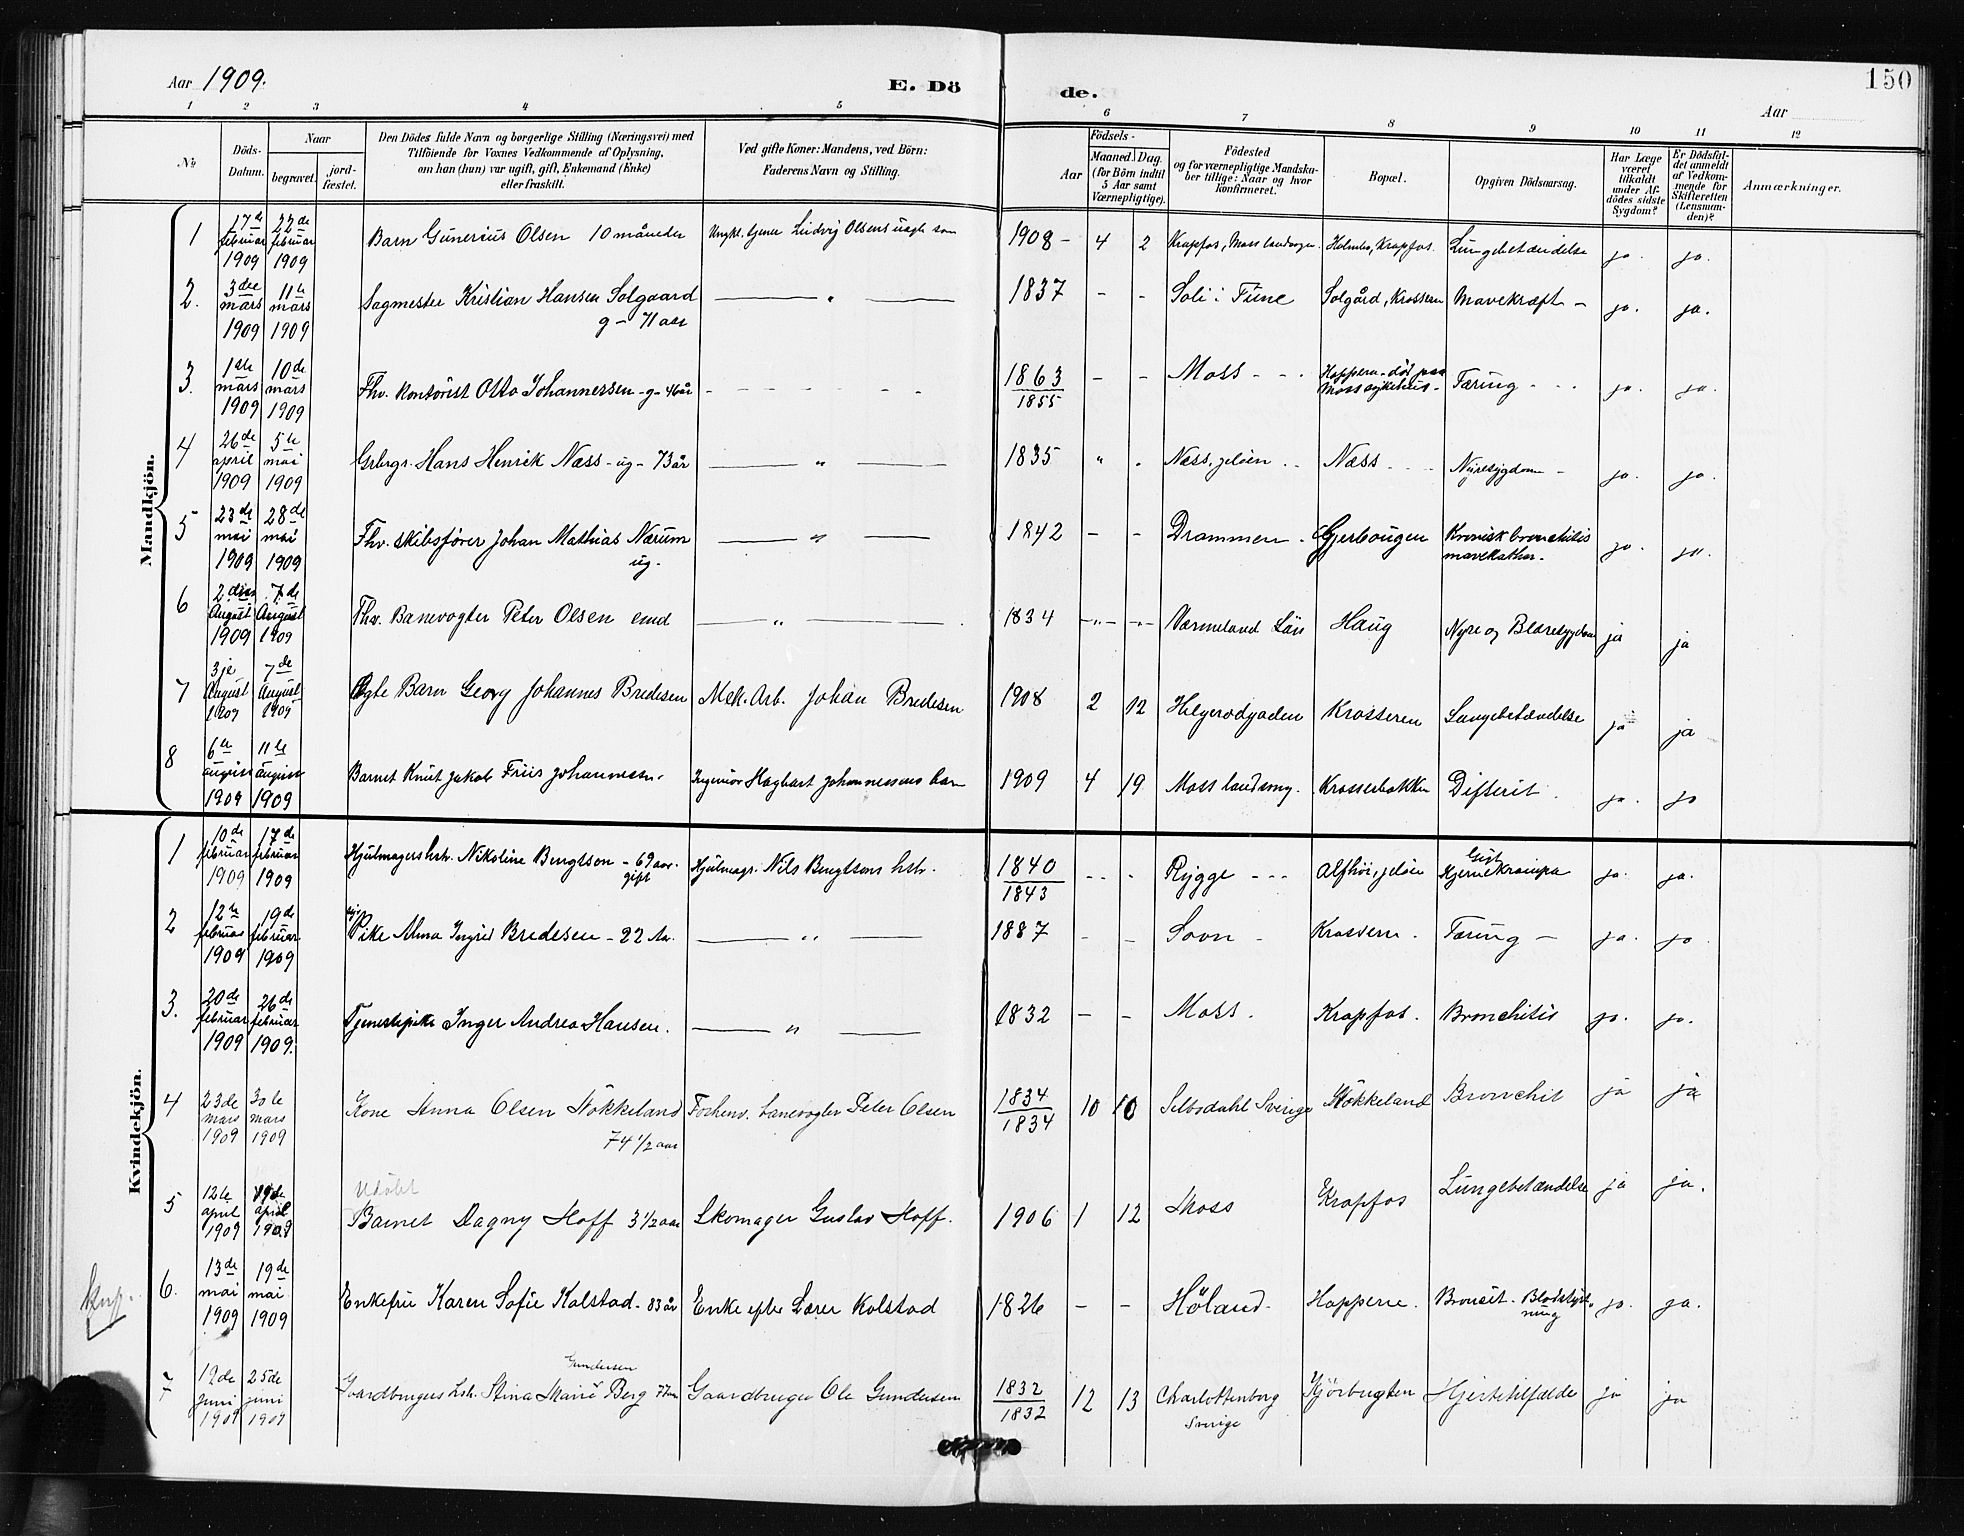 Aar 1909. E. Dö de. Aar 150
1 2 3 4 5 6 7 8 9 10 11 12
No Döds-Datum. Naar begravet. jord-fæstet. Den Dödes fulde Navn og borgerlige Stilling (Næringsvei) med Tilföiende for Voxnes Vedkommende af Oplysning, om han (hun) var ugift, gift, Enkemand (Enke) eller fraskilt. Ved gifte Koner: Mandens, ved Börn: Faderens Navn og Stilling. Födsels- Aar Maaned. Dag. (for Börn indtil 5 Aar samt Værnepligtige). Födested og for værnepligtige Mandska-ber tillige: Naar og hvor konfirmeret. Bopæl. Opgiven Dödsaarsag. Har Læge været tilkaldt under Af-dödes sidste Sygdom? Er Dödsfal-det anmeldt af Vedkom-mende for Skifteretten (Lensman-den)? Anmærkninger.
Mandkjön.
1 17de februar 1909 22de februar 1909 Barn Gunerius Olsen 10 måneder Ludvig Olsens 1908 - 4 2 Krapfos, Moss landsogn. Holmbo, Krapfos. Lungebetændelse ja. ja.
2. 3die mars 1909 11te mars 1909 Sagmester Kristian Hansen Solgaard g - 71 aar — " — 1837 - - Soli i Tune Solgård, Krosseren Mavekræft - ja. ja.
3. 1ste mars 1909 10de mars 1909 Fhv. kontorist Otto Johannessen - g - 46 år - - - - 1863 1855 - - Moss - - - Hoppern - död paa Moss sykehus - Tæring - - - ja. ja.
4 26de april 1909 5te mai 1909 Grbgr. Hans Henrik Næss - ug - 73 år — " — 1835 " . Næss, jeløen . . Næss - - - Nyresygdom - ja. ja.
5 23de mai 1909 28de mai 1909 Fhv. skibsfører Johan Mathias Nærum ug. — " — 1842 - - Drammen - Gjerbougen Kronisk bronchitis mavekathar. ja. ja.
6 2den August 1909 7de August 1909 Fhv. Banevogter Peter Olsen emd — " — 1834 -"- -"- Værmeland Län Haug Nyre og Blæresygdom ja ja
7 3je August 1909 7de August 1909 Ægte Barn Georg Johannes Bredesen Mek. Arb. Johan Bredesen 1908 2 12 Helgerødgaden Krosseren Lungebetændelse ja ja
8 6te august 1909 11te august 1909 Barnet Knut Jakob Friis Johannessen. Ingeniør Hagbart Johannessens barn 1909 4 19 Moss landsogn. Krosserbakken Difterit. ja. ja
Kvindekjön.
1 10de februar 1909 17de februar 1909 Hjulmagershstr. Nikoline Bengtson - 69 aar. gift Hjulmagr. Nils Bengtsons hstr. 1840 1843 - - - Rygge - - - Alfhöi, jeløen Gigt Hjertekrampa ja. ja.
2 12te februar 1909 19de februar 1909 Pike Alma Ingrid Bredesen - 22 Aar. — " — 1887 - - Sovn - Krosseren. Tæring - ja. ja
3. 20de februar 1909 26de februar 1909. Tjenestepike Inger Andrea Hansen. — " — 1832 - - Moss. Krapfos. Bronchitis ja. ja.
4 23de mars 1909 30te mars 1909 Kone Anna Olsen Nökkeland 74 1/2 aar Forhenv. banevogter Peter Olsen 1834 1834 10 10 Selbodahl Sverige Nökkeland Bronchit ja ja
5 12te april 1909 19de april 1909 Udøbt Barnet Dagny Hoff 3 1/2 aar Skomager Gustav Hoff. 1906 1 12 Moss Krapfos Lungebetændelse ja ja.
6. 13de mai 1909 19de mai 1909 Enkefru Karen Sofie Kolstad - 83 år Enke efter Lærer Kolstad 1826 - - Høland - Hopperne. Broncit - Blodstyrt-ning ja. ja.
7 19de juni 1909 25de juni 1909 Gaardbrugers hstr. Stina Marie Gundersen Berg 77 aar Gaardbruger Ole Gundersen 1832 1832 12 13 Charlottenborg Sverige Kjörbugten Hjertetilfælde ja ja